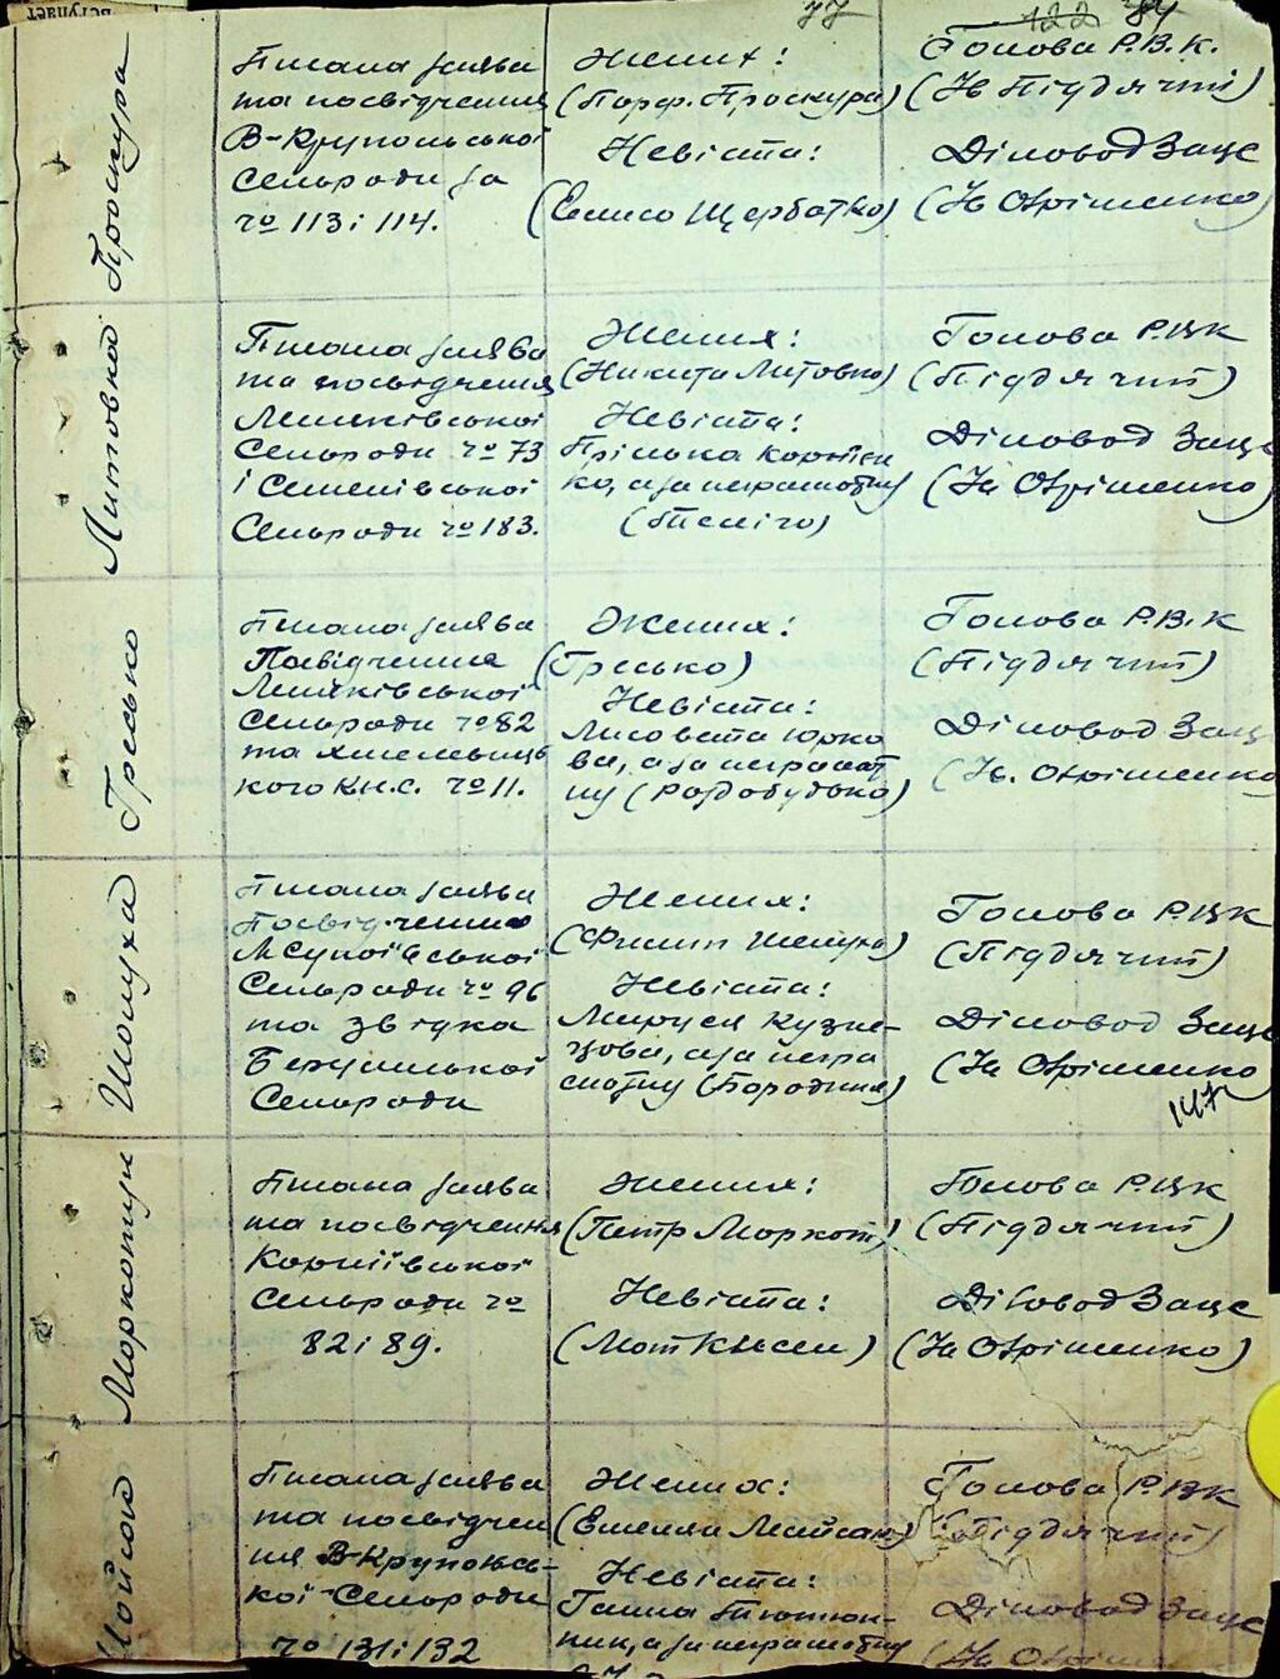 77 122 84
Проскура
Писана заява
та посвідчення
В-Крупольської
Сельради за
№ 113 і 114.
Жених:
(Порф. Проскура)
Невіста:
(Щербатко)
Голова Р.В.К.
(Піддячий)
Діловод Загс
(Охріменко)
Литовка
Писана заява
та посвідчення
Лемяківської
Сельради № 73
і Семенівської
Сельради № 183.
Жених:
(Никита Литовка)
Невіста:
Пріська Корнієн
ко, а за неграмотну
Голова РВК
(Піддячий)
Діловод Загс
(Охріменко)
Гресько
Писана заява
Посвідчення
Лемяківської
Сельради № 82
та
кого № 11.
Жених:
(Гресько)
Невіста:
Лисовета Юрко
ва, а за неграмот
ну (Роздобудько)
Голова Р.В.К
(Піддячий)
Діловод Загс
(Охріменко
Шолуха
Писана заява
Посвідчення
МСупоївської
Сельради № 96
та звідка
Сельради
Жених:
(Филип Шелуха)
Невіста:
Маруся Кузне-
цова, а за негра
мотну (Бородиня)
Голова РВК
(Піддячий)
Діловод Загс
(Охріменко
147
Моркотун
Писана заява
та посвідчення
Корніївської
Сельради №
82 і 89.
Жених:
(Петр Моркот)
Невіста:
Голова РВК
(Піддячий)
Діловод Загс
(Охріменко)
Мойсак
Писана заява
та посвідчен
ня В-Круполь-
кої Сельради
№ 131 і 132
Жених:
(Емельян Мойсак)
Невіста:
Ганна Тютюн-
ник, а за неграмотну
Голова РВК
(Піддячий)
Діловод Загс